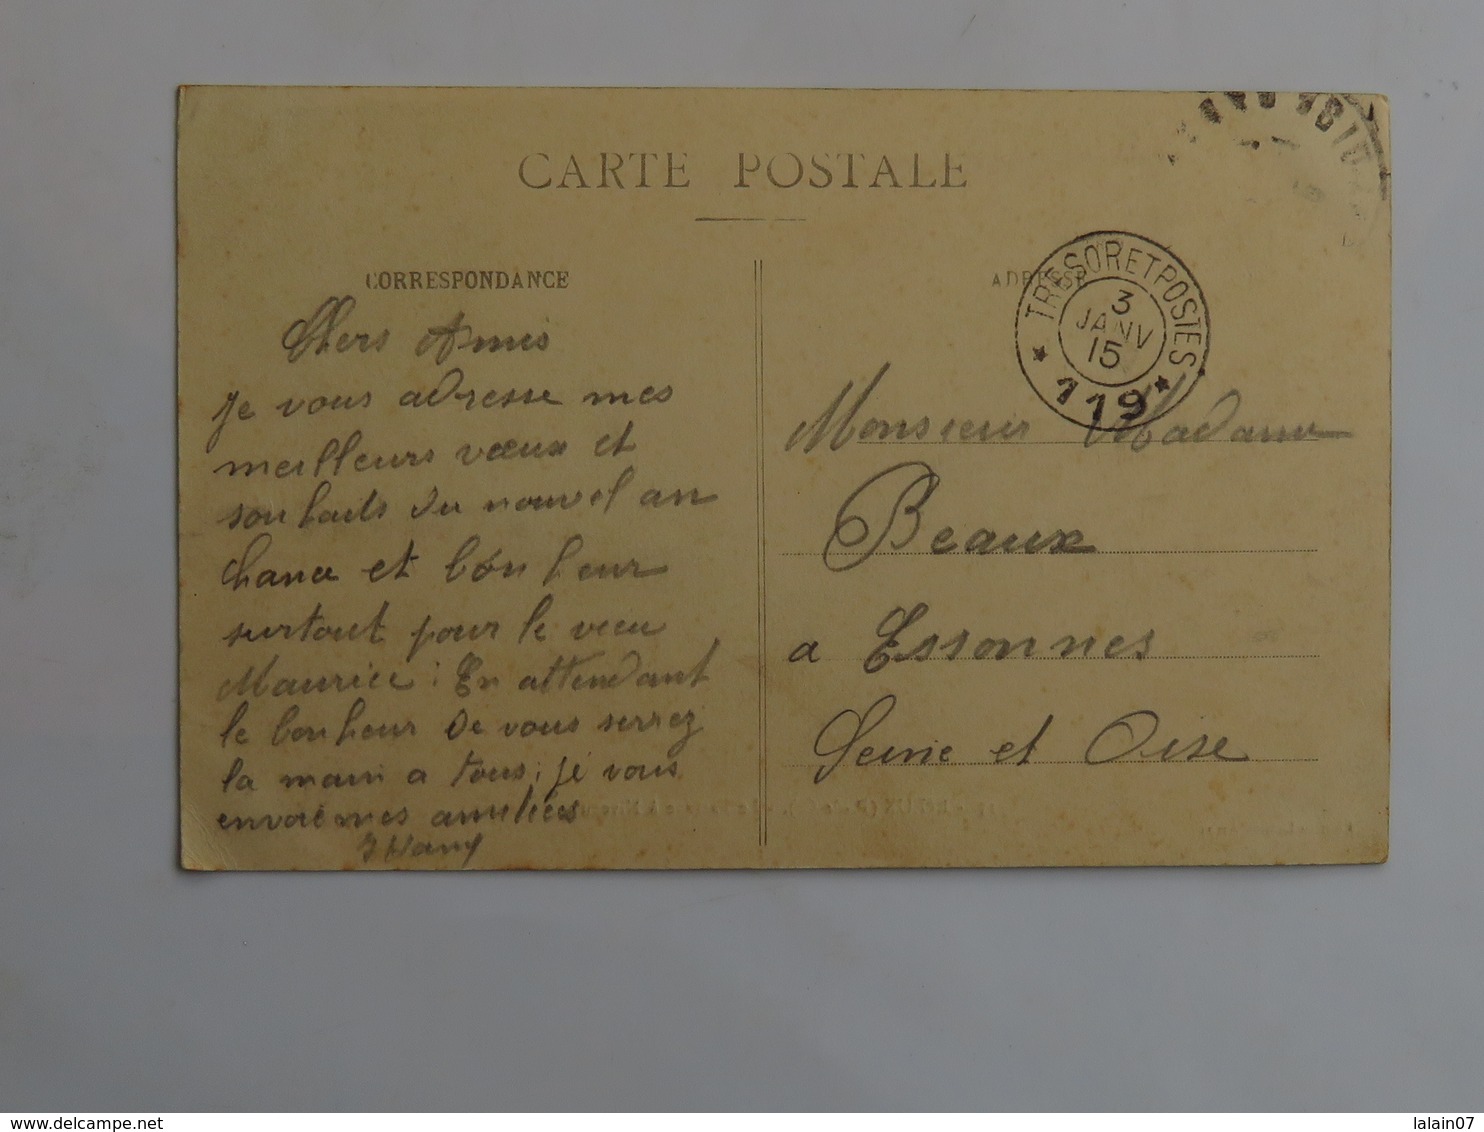 CARTE POSTALE
CORRESPONDANCE
Chers Amis
Je vous adresse mes
meilleurs vœux et
souhaits du nouvel an
chance et bonheur
surtout pour le vieu
Maurice : En attendant
le bonheur de vous serrez
la main a tous, je vous
envoie mes amitiées
ADRESSE
TRESOR ET POSTES
3
JANV
15
* 119 *
Monsieur Madame
Beaux
a Essonnes
Seine et Oise
www.delcampe.net
lalain07